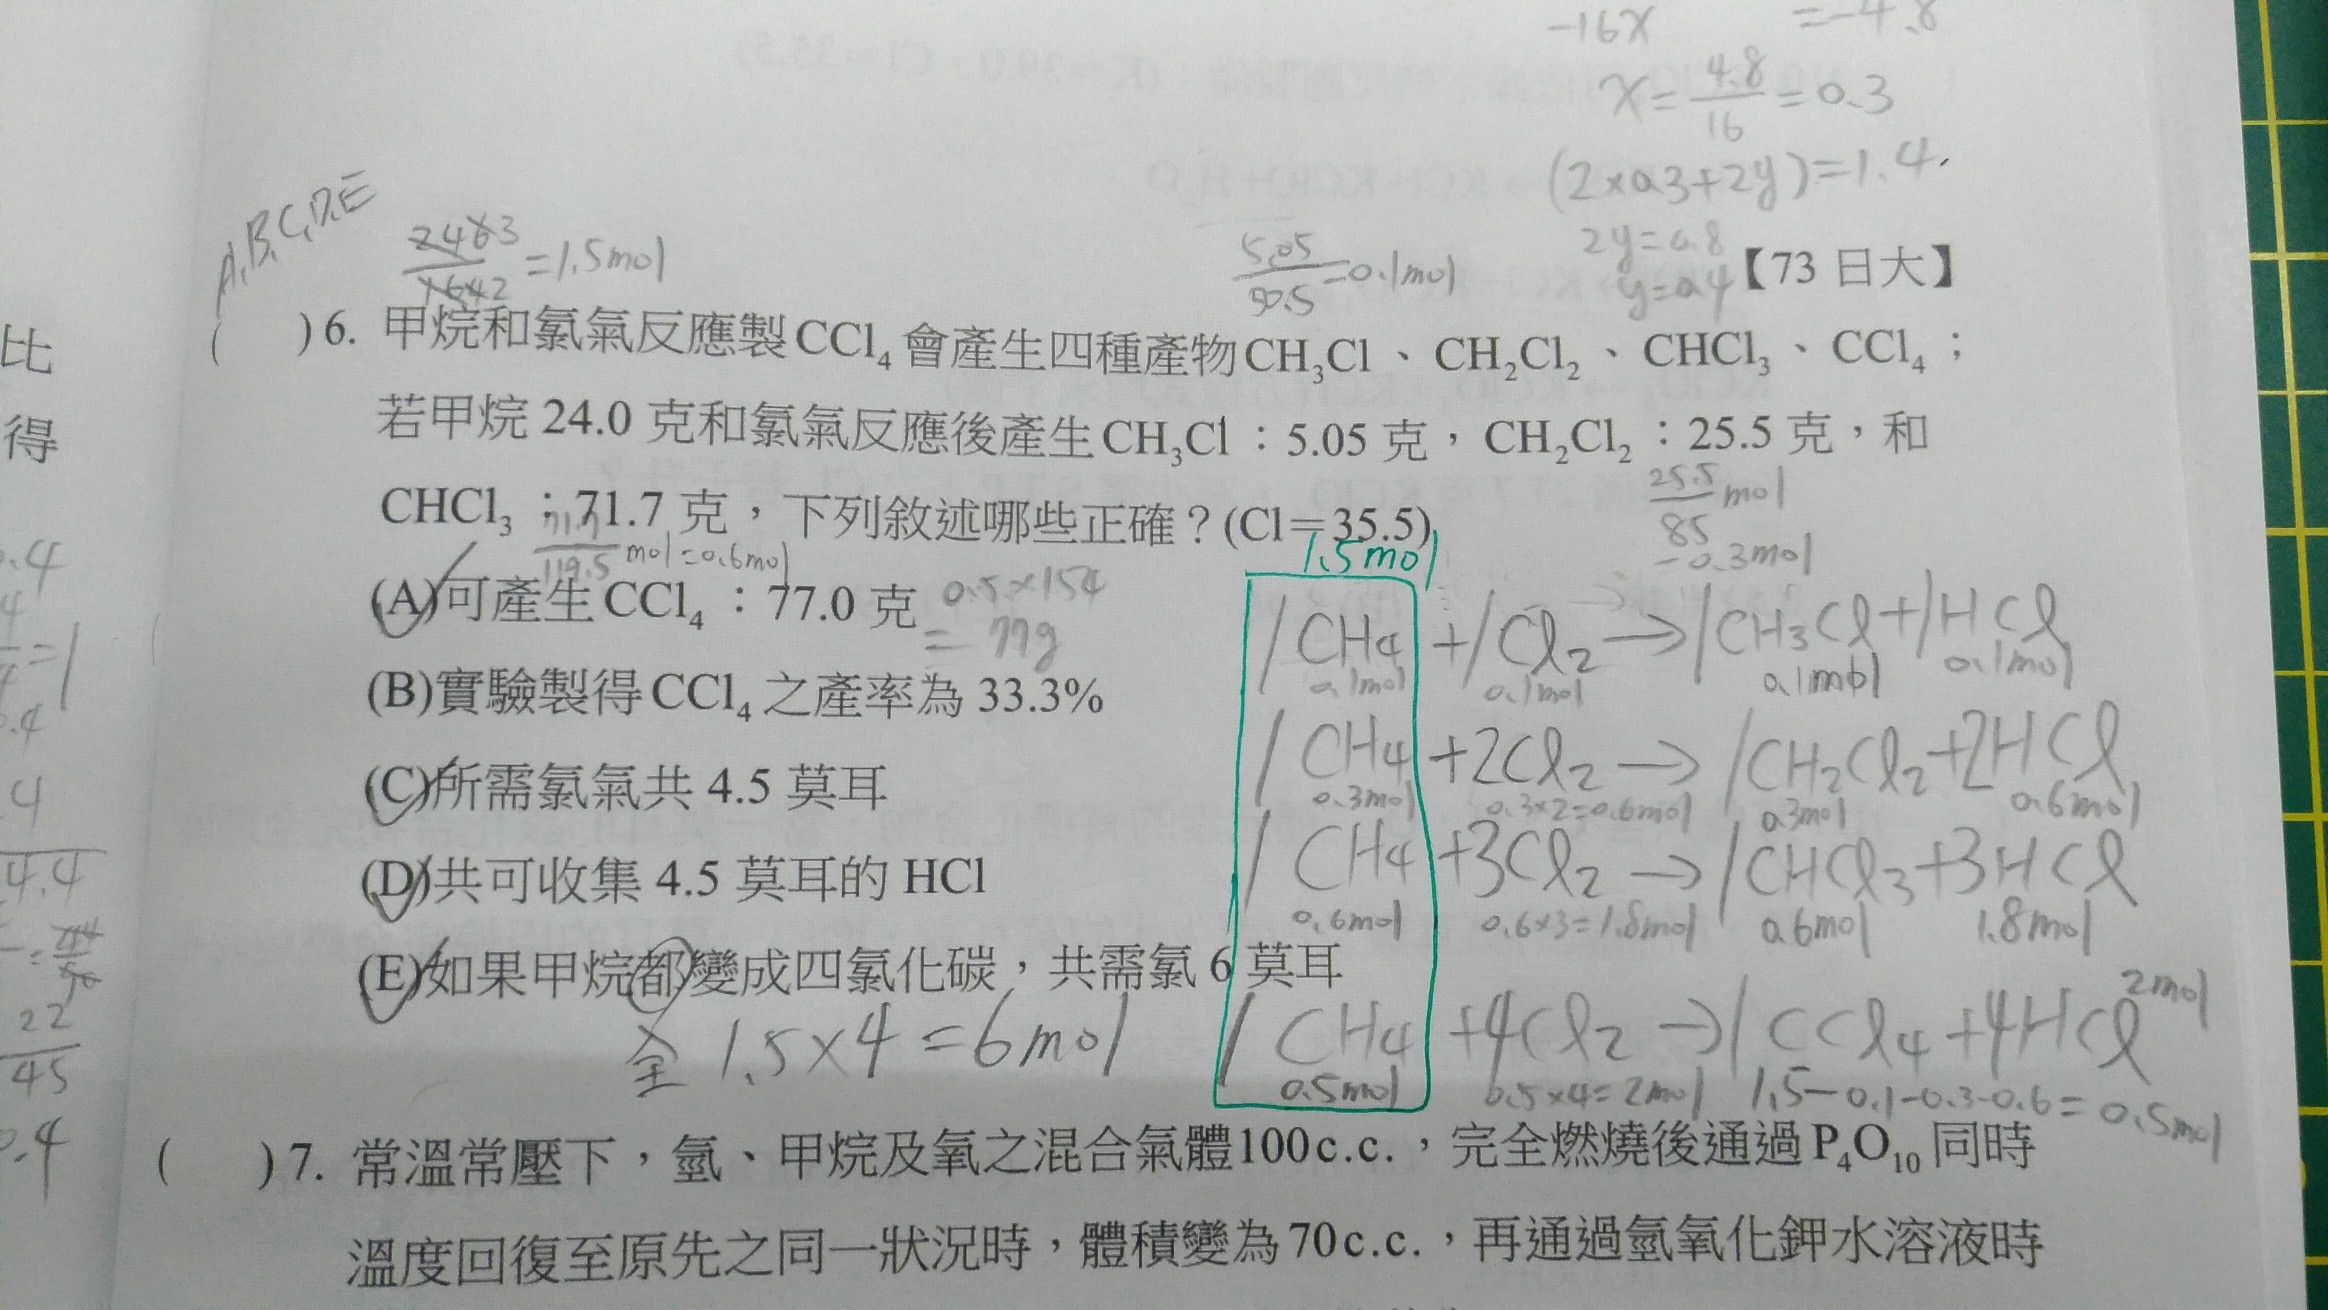 -16x =-4.8
x=4.8/16=0.3
(2×0.3+2y)=1.4.
2y=0.8
y=0.4
【73 日大】
A,B,C,D,E
=1.5mol
5.05/50.5=0.1mol
比
得
( )6. 甲烷和氯氣反應製CCl₄會產生四種產物CH₃Cl、CH₂Cl₂、CHCl₃、CCl₄；
若甲烷 24.0 克和氯氣反應後產生CH₃Cl：5.05 克，CH₂Cl₂：25.5 克，和
25.5/85 mol
=0.3mol
CHCl₃：71.7 克，下列敘述哪些正確？(Cl＝35.5)
71.7/119.5 mol=0.6mol
1.5mol
(A)可產生CCl₄：77.0 克
0.5×154
= 77g
(B)實驗製得CCl₄之產率為 33.3%
(C)所需氯氣共 4.5 莫耳
(D)共可收集 4.5 莫耳的 HCl
(E)如果甲烷都變成四氯化碳，共需氯 6 莫耳
全 1.5×4=6mol
1CH4+1Cl2→1CH3Cl+1HCl
0.1mol 0.1mol 0.1mol 0.1mol
1CH4+2Cl2→1CH2Cl2+2HCl
0.3mol 0.3×2=0.6mol 0.3mol 0.6mol
1CH4+3Cl2→1CHCl3+3HCl
0.6mol 0.6×3=1.8mol 0.6mol 1.8mol
1CH4+4Cl2→1CCl4+4HCl 2mol
0.5mol 0.5×4=2mol 1.5-0.1-0.3-0.6=0.5mol
( )7. 常溫常壓下，氫、甲烷及氧之混合氣體100c.c.，完全燃燒後通過P₄O₁₀同時
溫度回復至原先之同一狀況時，體積變為70c.c.，再通過氫氧化鉀水溶液時
22/45